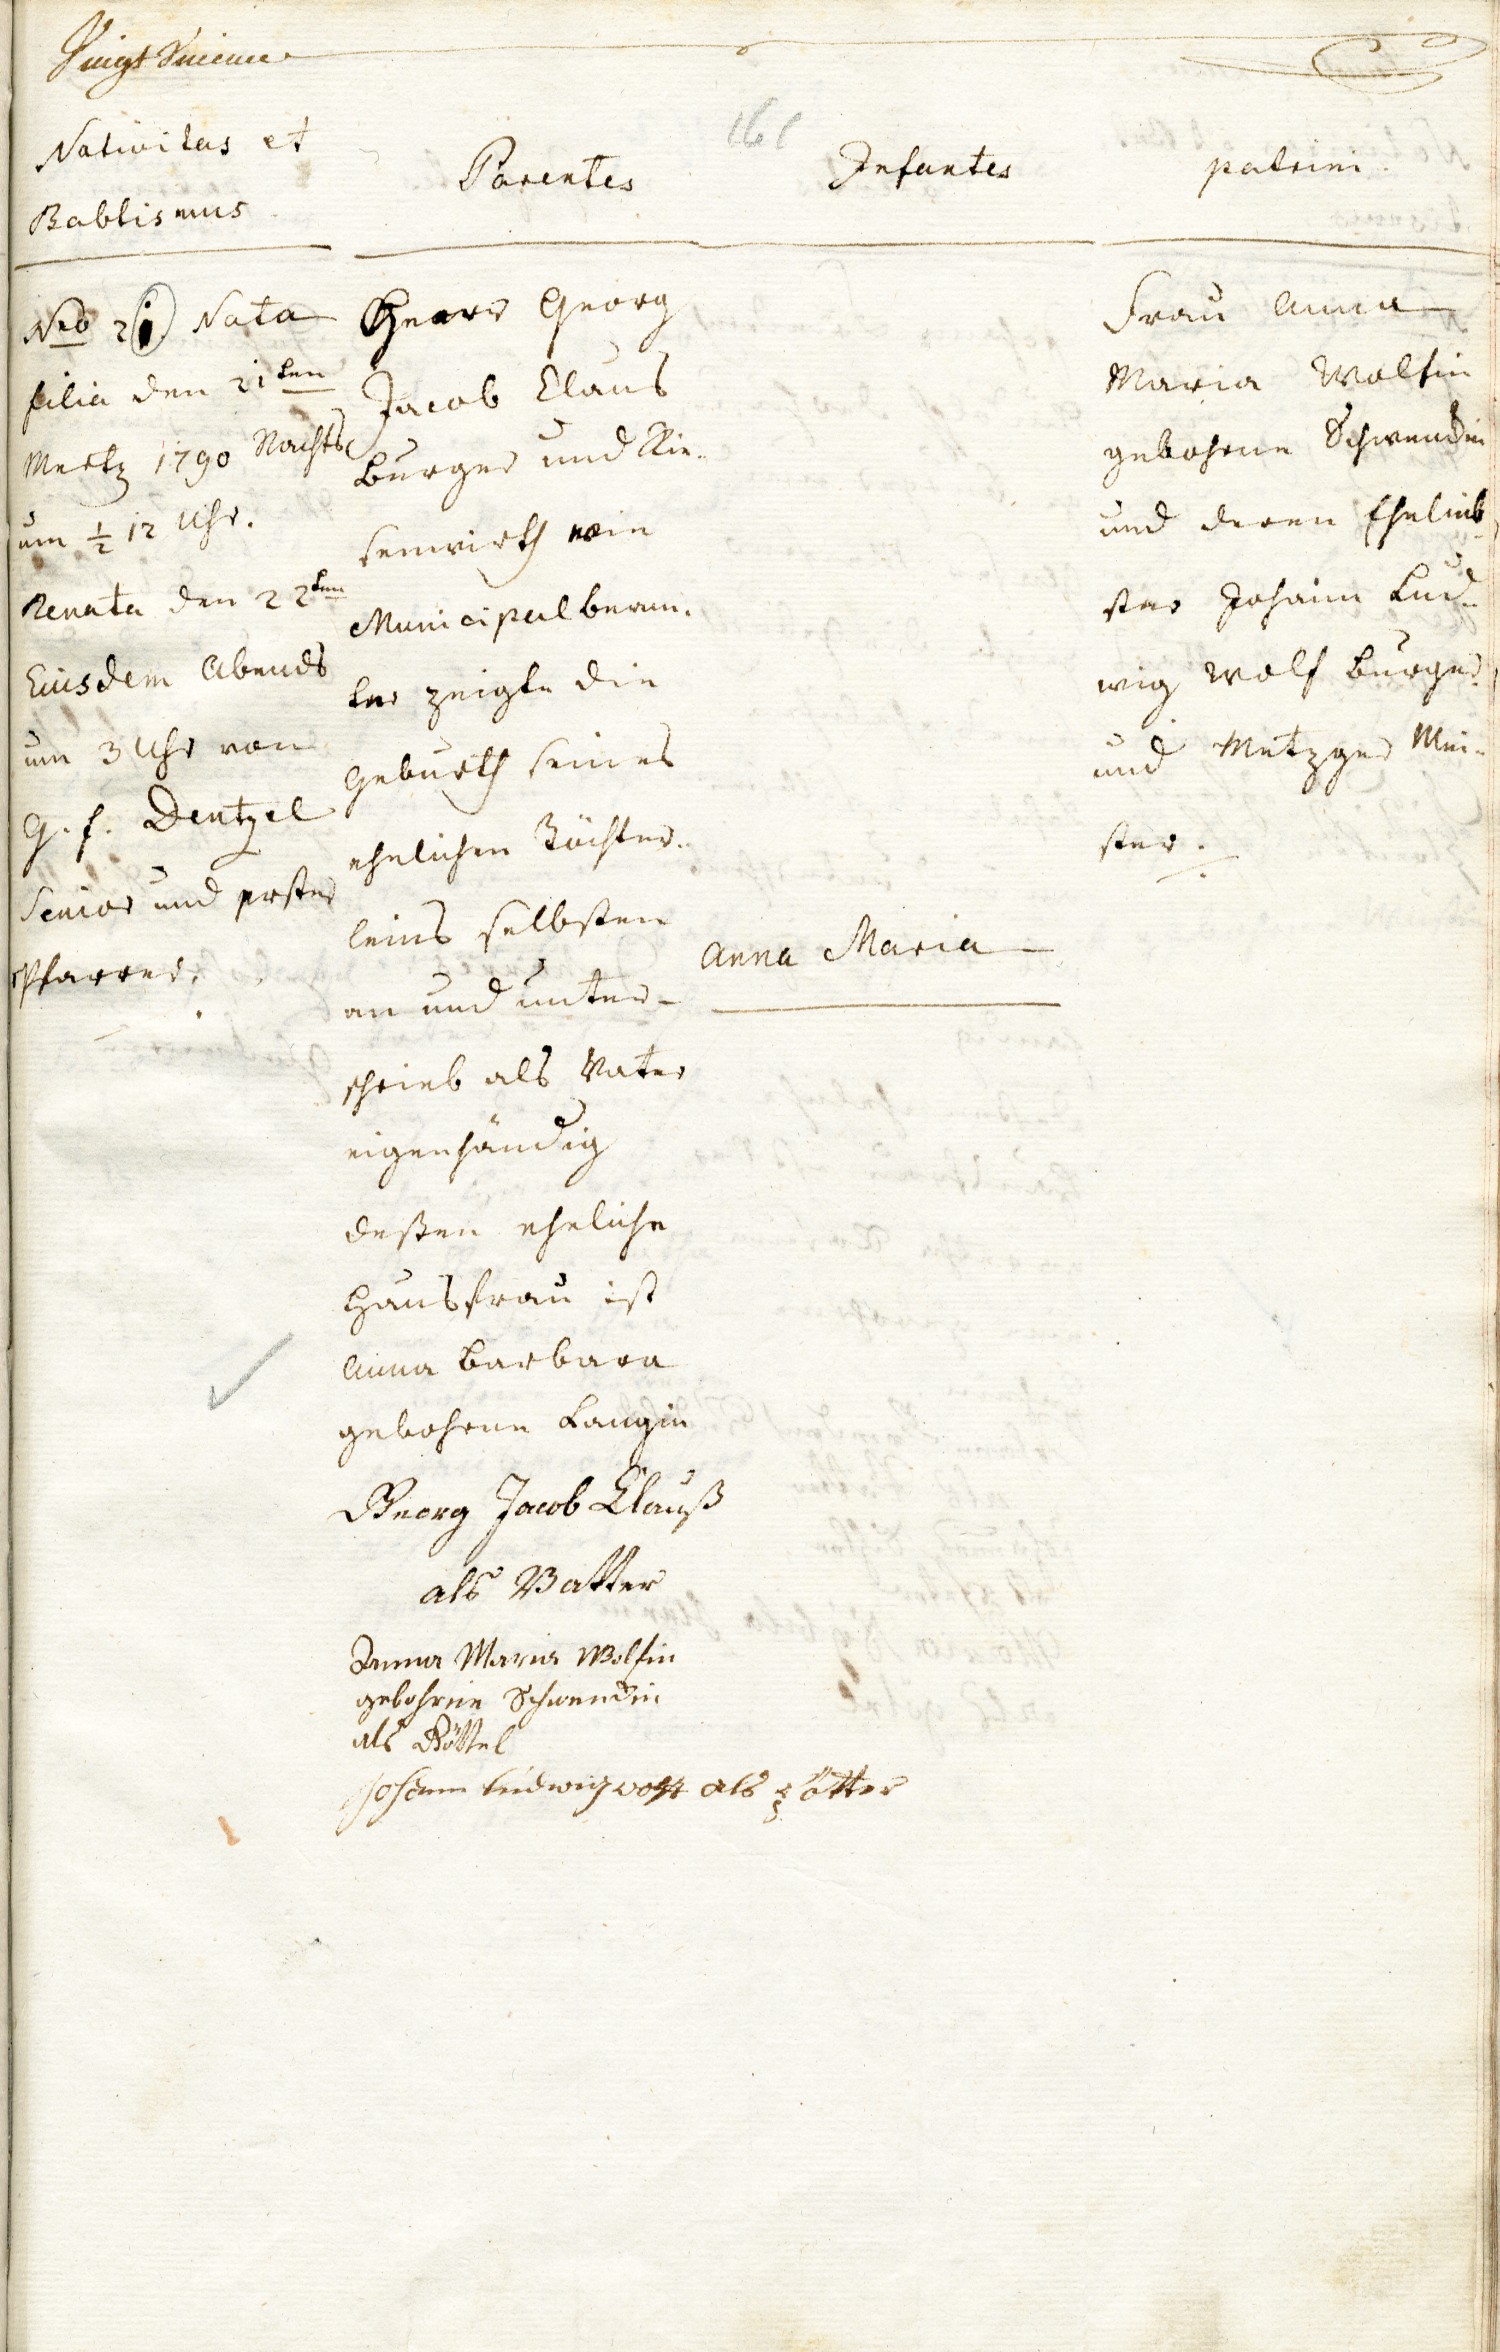 Vingt Unieme
161
Nativitas et
Babtismus
Parentes
Infantes
patrini.
Nro 21 Nata
filia den 21ten
Mertz 1790 Nachts
um ½ 12 Uhr.
Renata den 22ten
Eiusdem Abends
um 3 Uhr von
G. f. Dentzel
Senior und erster
Pfarrer.
Herr Georg
Jacob Claus
Burger und
senwirth wie
Municipalbeam-
ter zeigte die
Geburth seines
ehelichen Töchter-
leins selbsten
an und unter-
schrieb als Vater
eigenhändig
deßen eheliche
Hausfrau ist
Anna Barbara
gebohrne Langin
Georg Jacob Clauß
als Vatter
Anna Maria Wolfin
gebohrne Schwendin
als Göttel
Johann Ludwig wolf als götter
Anna Maria
Frau Anna
Maria Wolfin
gebohrne Schwendin
und deren Ehelieb-
ster Johann Lud-
wig Wolf Burger
und Metzger Mei-
ster.